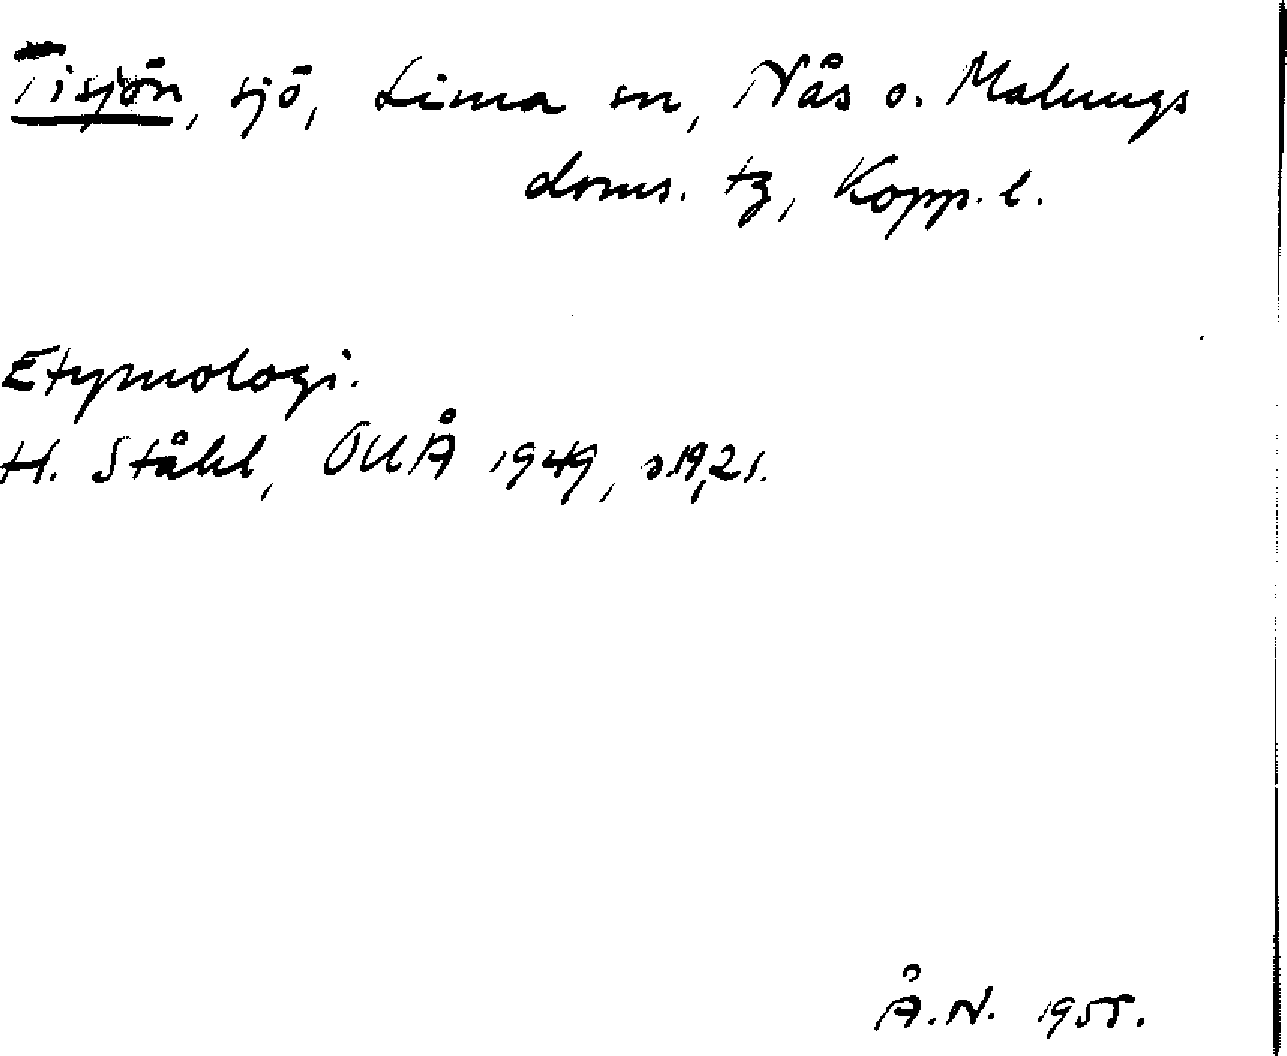 Tisjön, sjö, Lima sn, Nås o. Malungs
doms. tg, Kopp. l.
Etymologi.
H. Ståhl, OUÅ 1949, s. 19, 21.
Å.N. 1955.